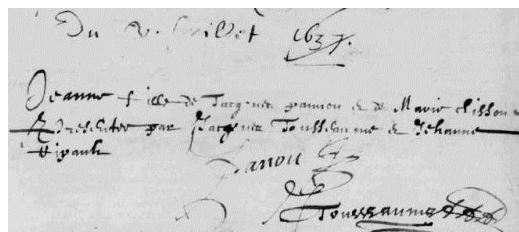 Du v. Juillet 1637.
Jeanne fille de Jacques panion et de Marie clisson
Presentee par Jacques Toussaune et Jehanne
ripault
Panou
Toussaune